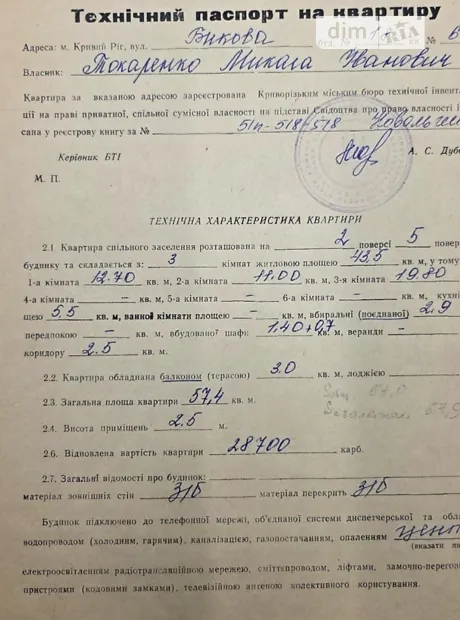 Технічний паспорт на квартиру
dim RIA
Адреса: м. Кривий Ріг, вул. Бикова буд. № 1 №
Власник: Токаренко Микола Іванович
Квартира за вказаною адресою зареєстрована Криворізьким міським бюро технічної інвента
ції на праві приватної, спільної сумісної власності на підставі Свідоцтва про право власності і
сана у реєстрову книгу за № 51п-518-518
Керівник БТІ А. С. Дубо
М. П.
ТЕХНІЧНА ХАРАКТЕРИСТИКА КВАРТИРИ
2.1 Квартира спільного заселення розташована на 2 поверсі 5 повер
будинку та складається з: 3 кімнат житловою площею 43,5 кв. м, у тому
1-а кімната 12.70 кв. м, 2-а кімната 11.00 кв. м, 3-я кімната 19.80
4-а кімната — кв. м, 5-а кімната — 6-а кімната — кв. м, кухні
щею 5,5 кв. м, ванної кімнати площею — кв. м, вбиральні (поєднаної) 2.9
передпокою — кв. м, вбудованої шафи 1.40+0,7 кв. м, веранди —
коридору 2.5 кв. м.
2.2. Квартира обладнана балконом (терасою) 3.0 кв. м, лоджією
2.3. Загальна площа квартири 57,4 кв. м.
2.4. Висота приміщень 2.5 м.
2.6. Відновлена вартість квартири 28700 карб.
2.7. Загальні відомості про будинок:
матеріал зовнішніх стін З/Б матеріал перекрить З/Б
Будинок підключено до телефонної мережі, об'єднаної системи диспетчерської та обла
водопроводом (холодним, гарячим), каналізацією, газопостачанням, опаленням цент
(вказати як
електроосвітленням радіотрансляційною мережею, сміттєпроводом, ліфтами, замочно-перегов
пристроями (кодовими замками), телевізійною антеною колективного користування.